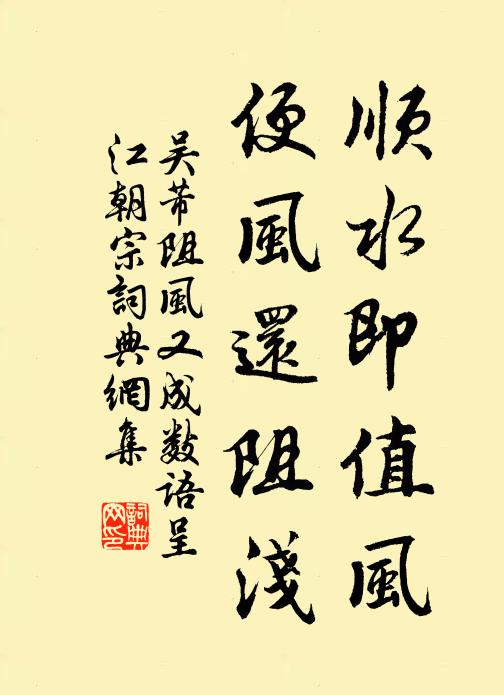 順水即值風
便風還阻淺
吳芾阻風又成數語呈
江朝宗詞典網集
詞典
网印